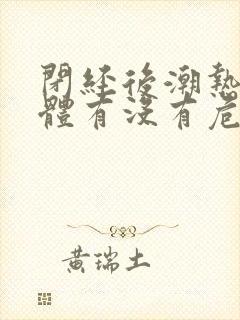 閉經後潮熱
體有沒有危
黃瑞土